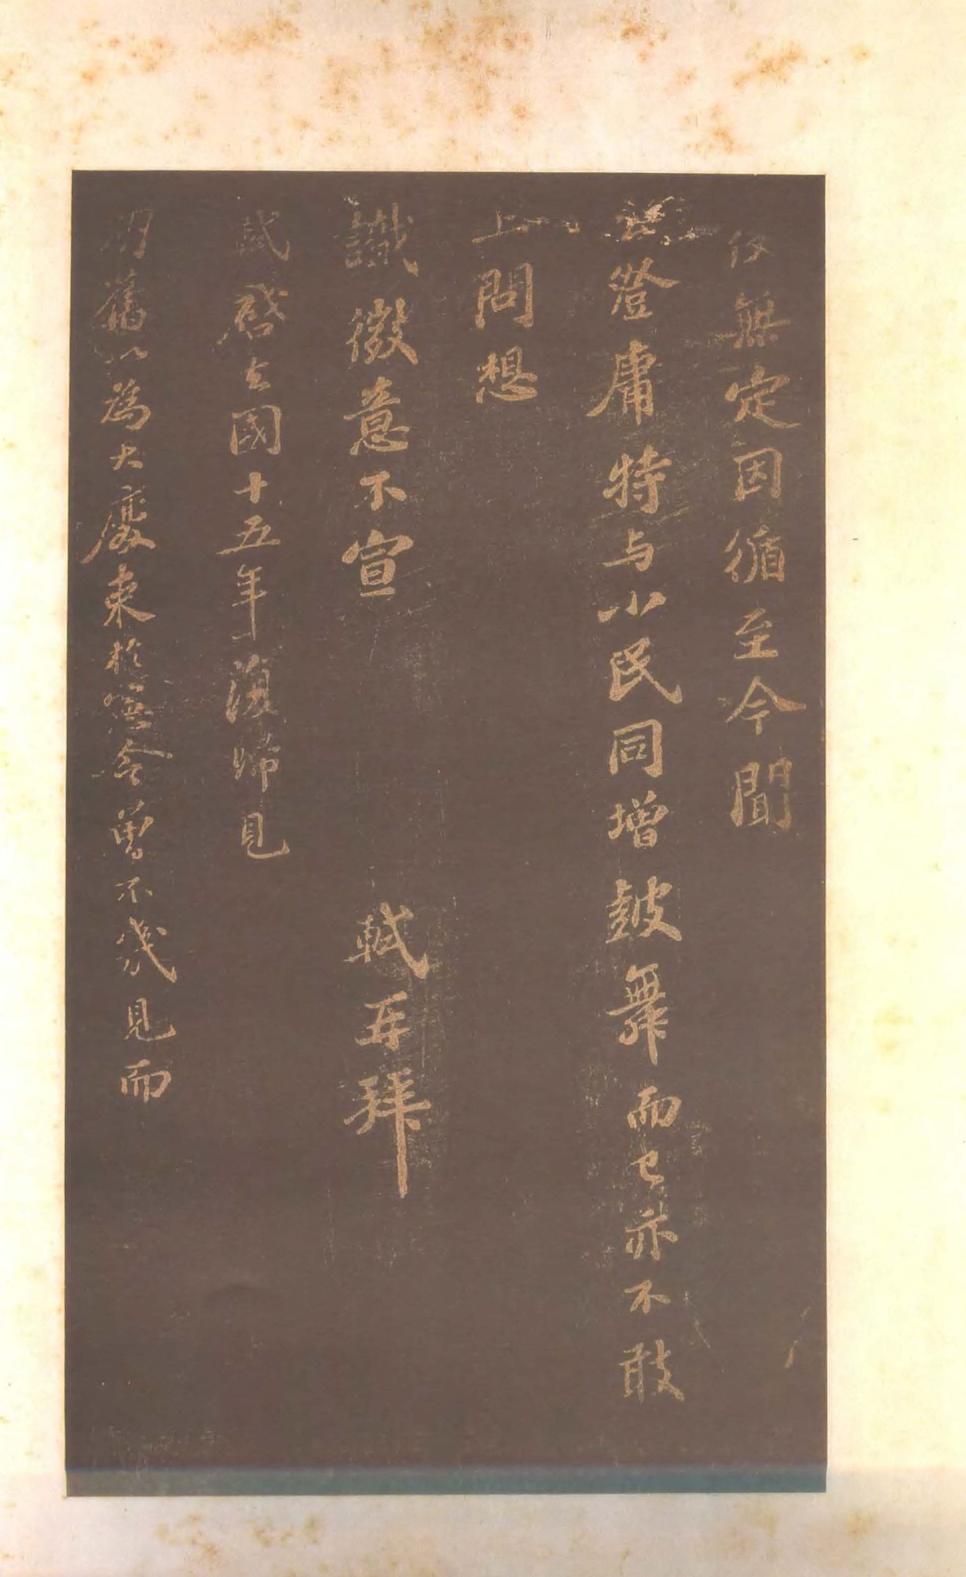 役無定因循至今聞
登庸特与小民同增鼓舞而已亦不敢
上問想
識微意不宣 軾再拜
軾啓去國十五年復歸見
朋舊以爲大慶東於寒令曾不幾見而